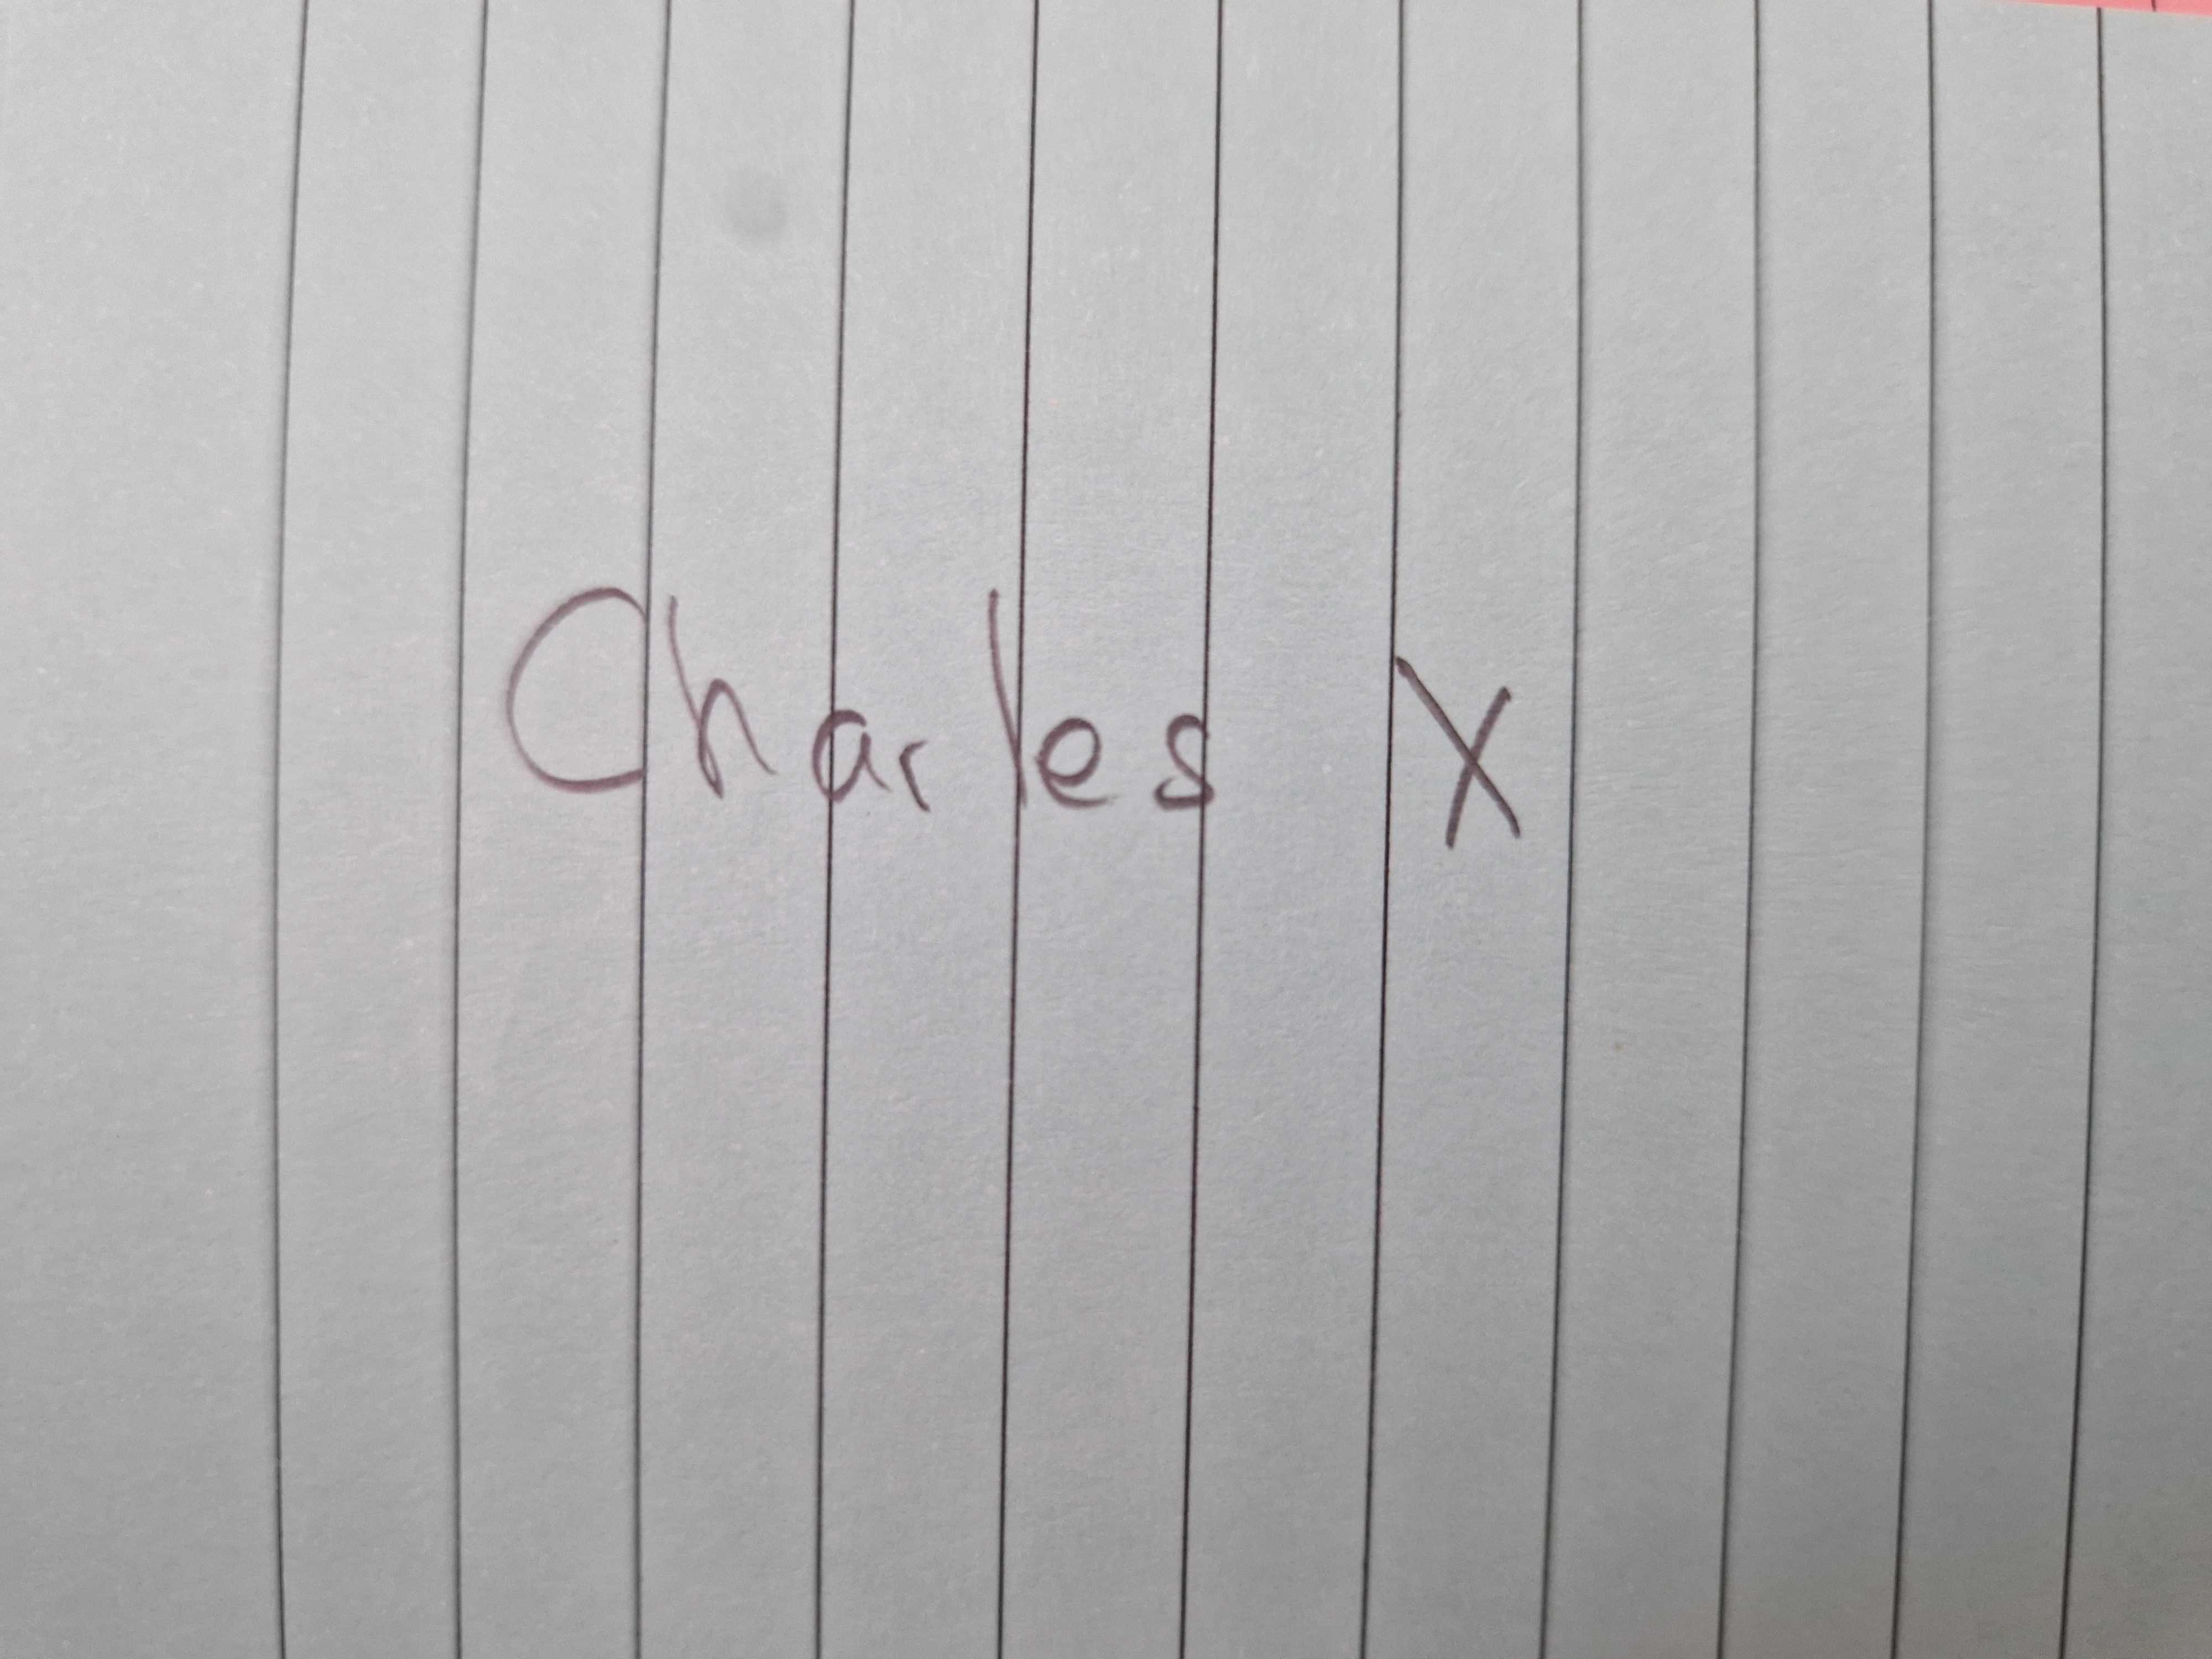 Charles X